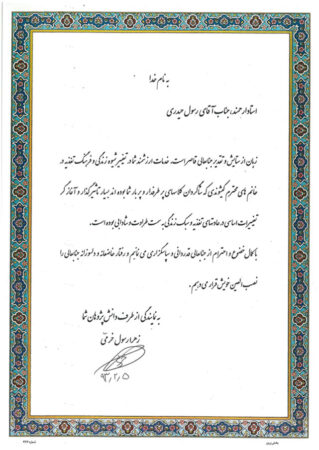 به نام خدا
استاد ارجمند، جناب آقای رسول حیدری
زبان از ستایش و تقدیر جنابعالی قاصر است، خدمات ارزشمند شما در تغییر شیوه زندگی و فرهنگ تغذیه در
خانم های محترم که شاگردان کلاسهای پرطرفدار و پربار شما بوده اند بسیار تاثیرگذار و آغازگر
تغییرات اساسی در عادتهای تغذیه و سبک زندگی به سمت طراوت و شادابی بوده است.
با کمال خضوع و احترام از جنابعالی قدردانی و سپاسگزاری می نمایم و رفتار خالصانه و دلسوزانه جنابعالی را
نصب العین خویش قرار می دهم.
به نمایندگی از طرف دانش پژوهان شما
زهرا رسول خرمی
۹۳,۲,۵